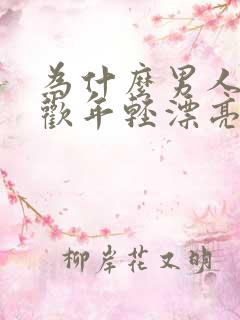 為什麼男人
歡年輕漂亮
柳岸花又明